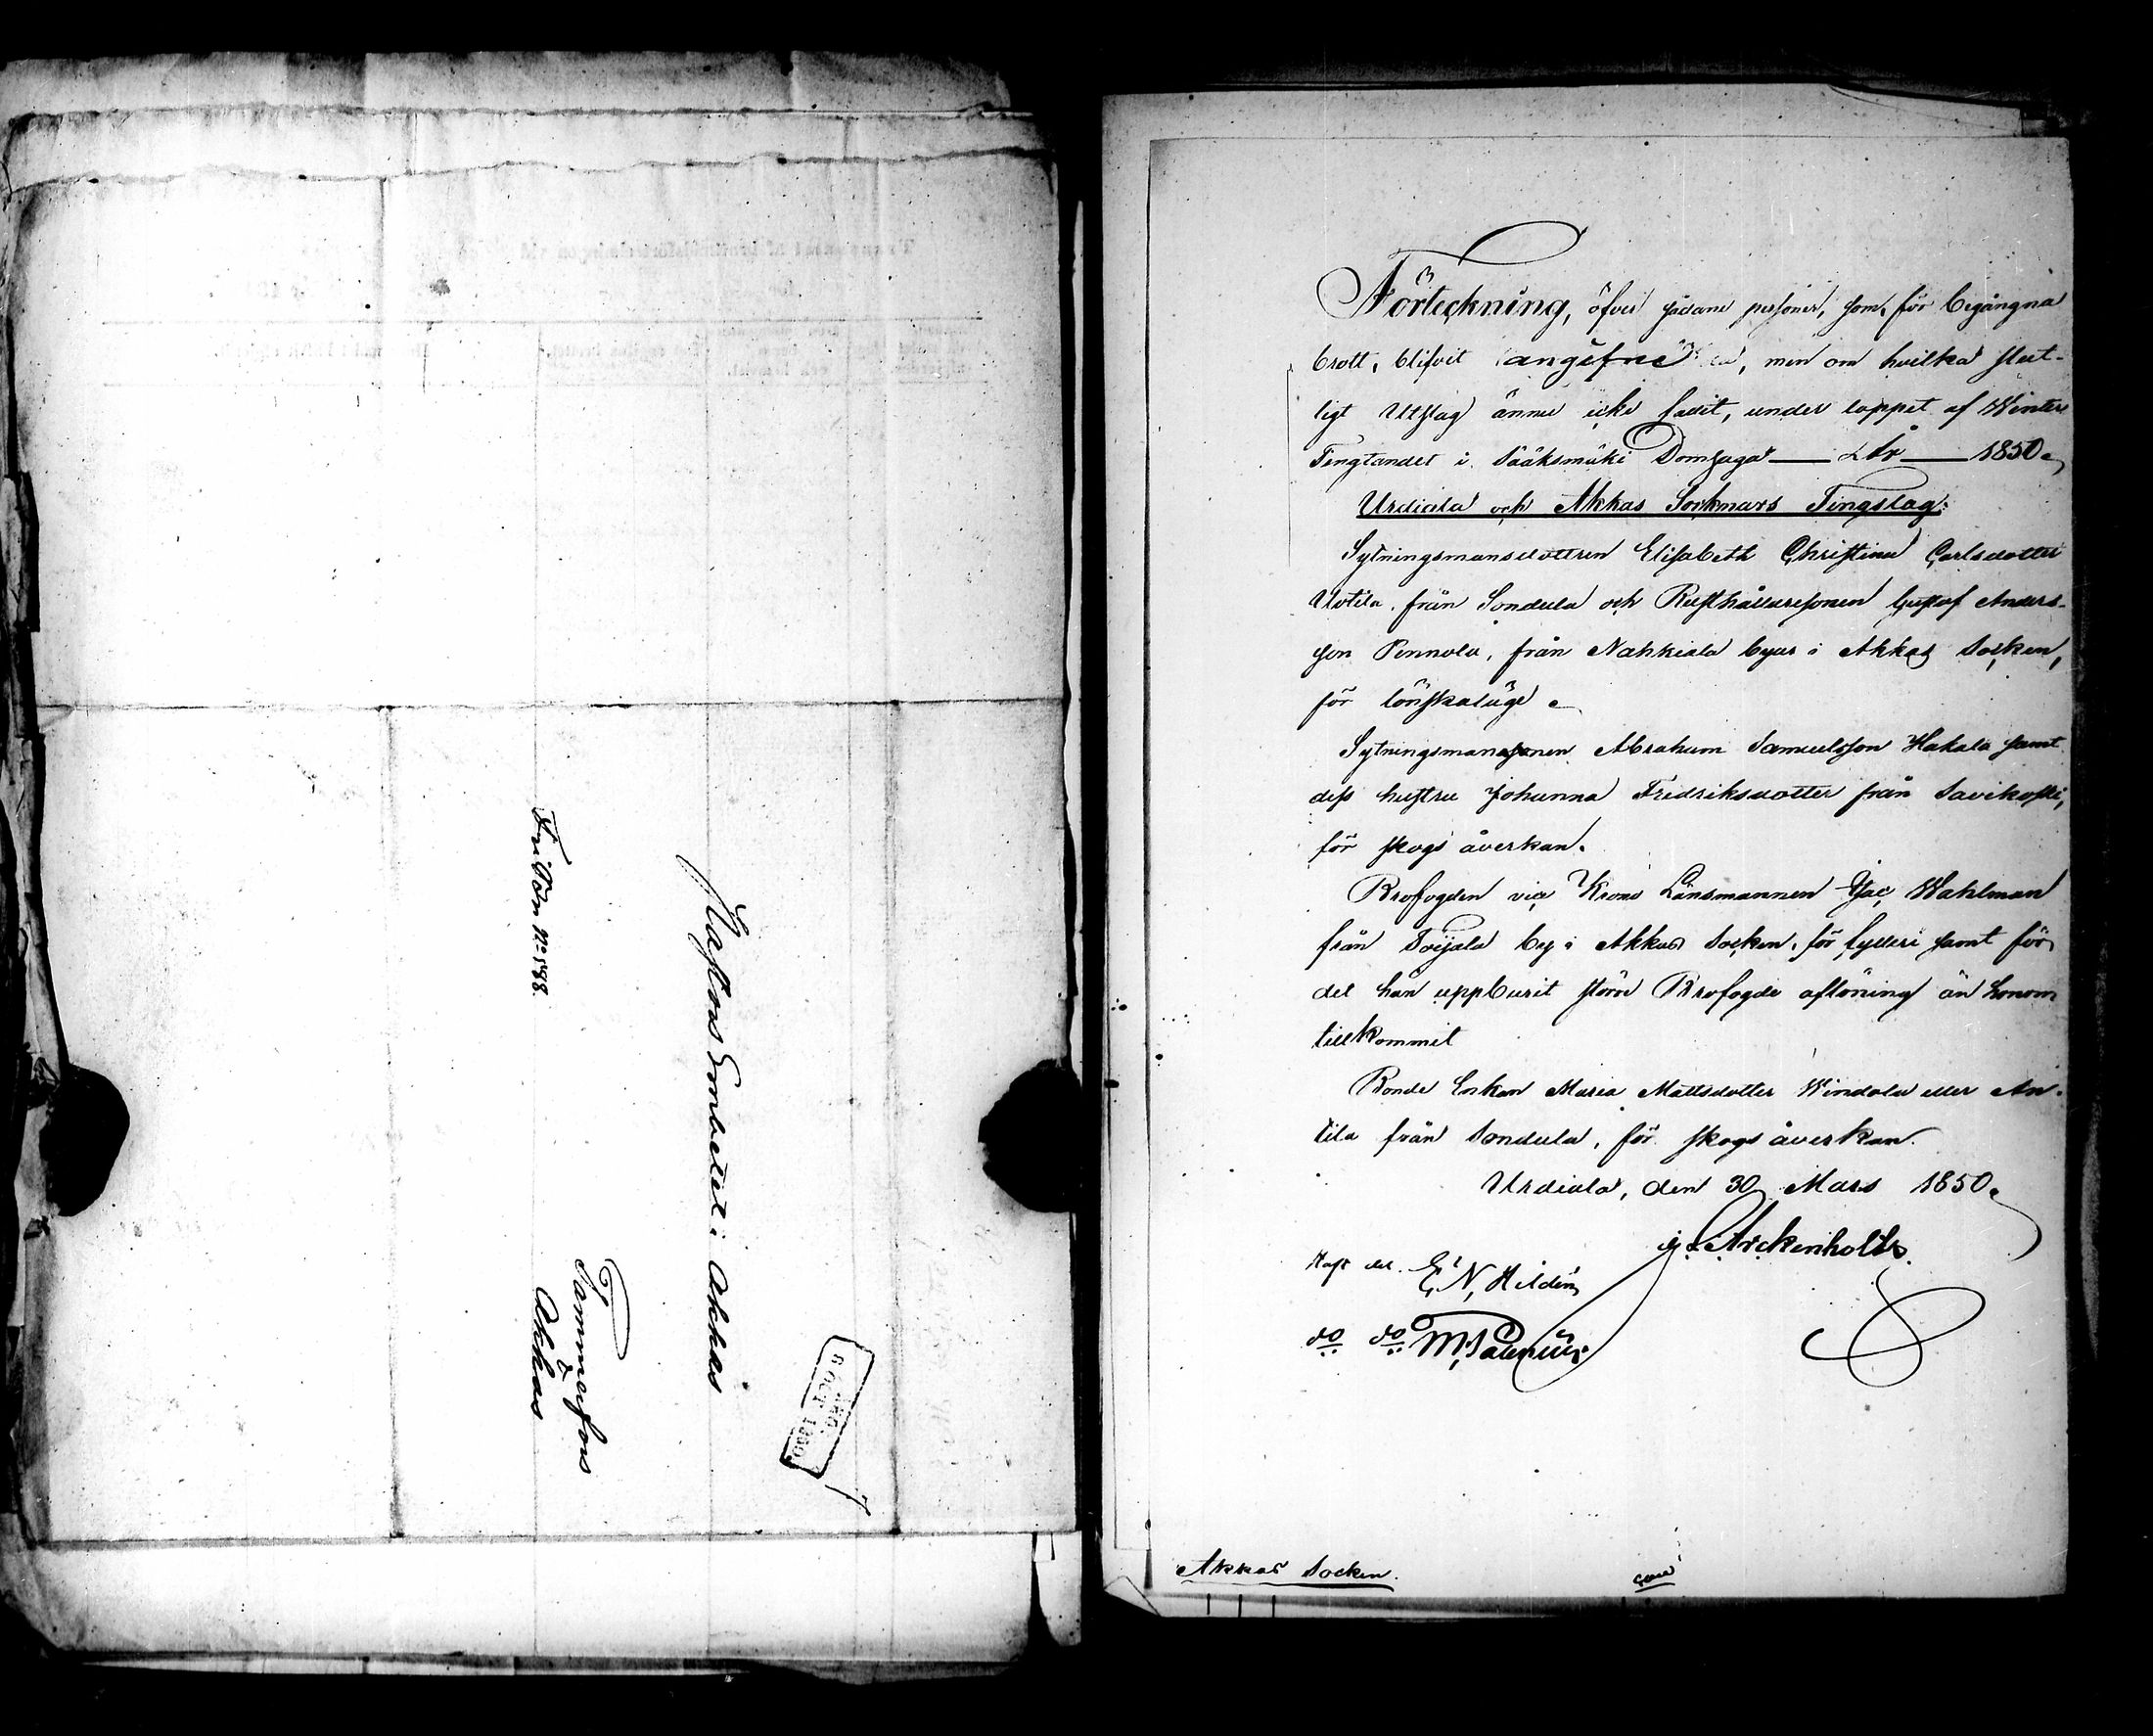 Pastors Embetet i Akkas
Fri Tön No 588.
Tammerfors
&
Akkas
Förteckning, öfver sådane personer, som, för begångna
brott, blifvit angifne, men om hvilka slut-
ligt Utslag ännu icke fallit, under loppet af Winter
Tingtandet i Sääksmäki Domsaga — År — 1850.
Urdiala och Akkas Socknars Tingslag:
Sytningsmansdottren Elisabeth Christina Carlsdotter
Uotila, från Sondula och Rusthållaresonen Gustaf Anders-
son Pennola, från Nahkiala byar i Akkas Socken,
för lönskaläge.
Sytningsmanssonen Abraham Samuelsson Hakala samt
dess hustru Johanna Fredriksdotter från Savikoski,
för skogs åverkan.
Brofogden vice Krono Länsmannen Jac Wahlman
från Toijala by i Akkas Socken, för fylleri samt för
det han uppburit större Brofogde aflöning än honom
tillkommit
Bonde Enkan Maria Mattsdotter Windala eller An-
tila från Sondula, för skogs åverkan.
Urdiala, den 30 Mars 1850.
Arckenholtz.
E. N. Hildén
do do M. Palenius
Akkas Socken.